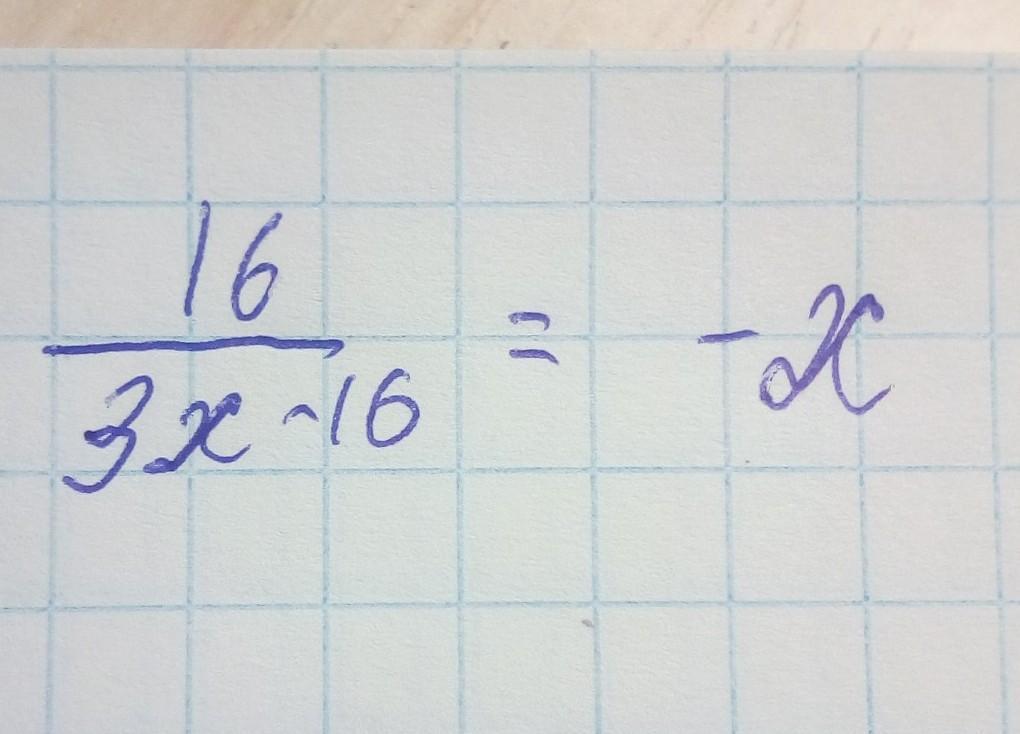 16
3x - 16 = -x